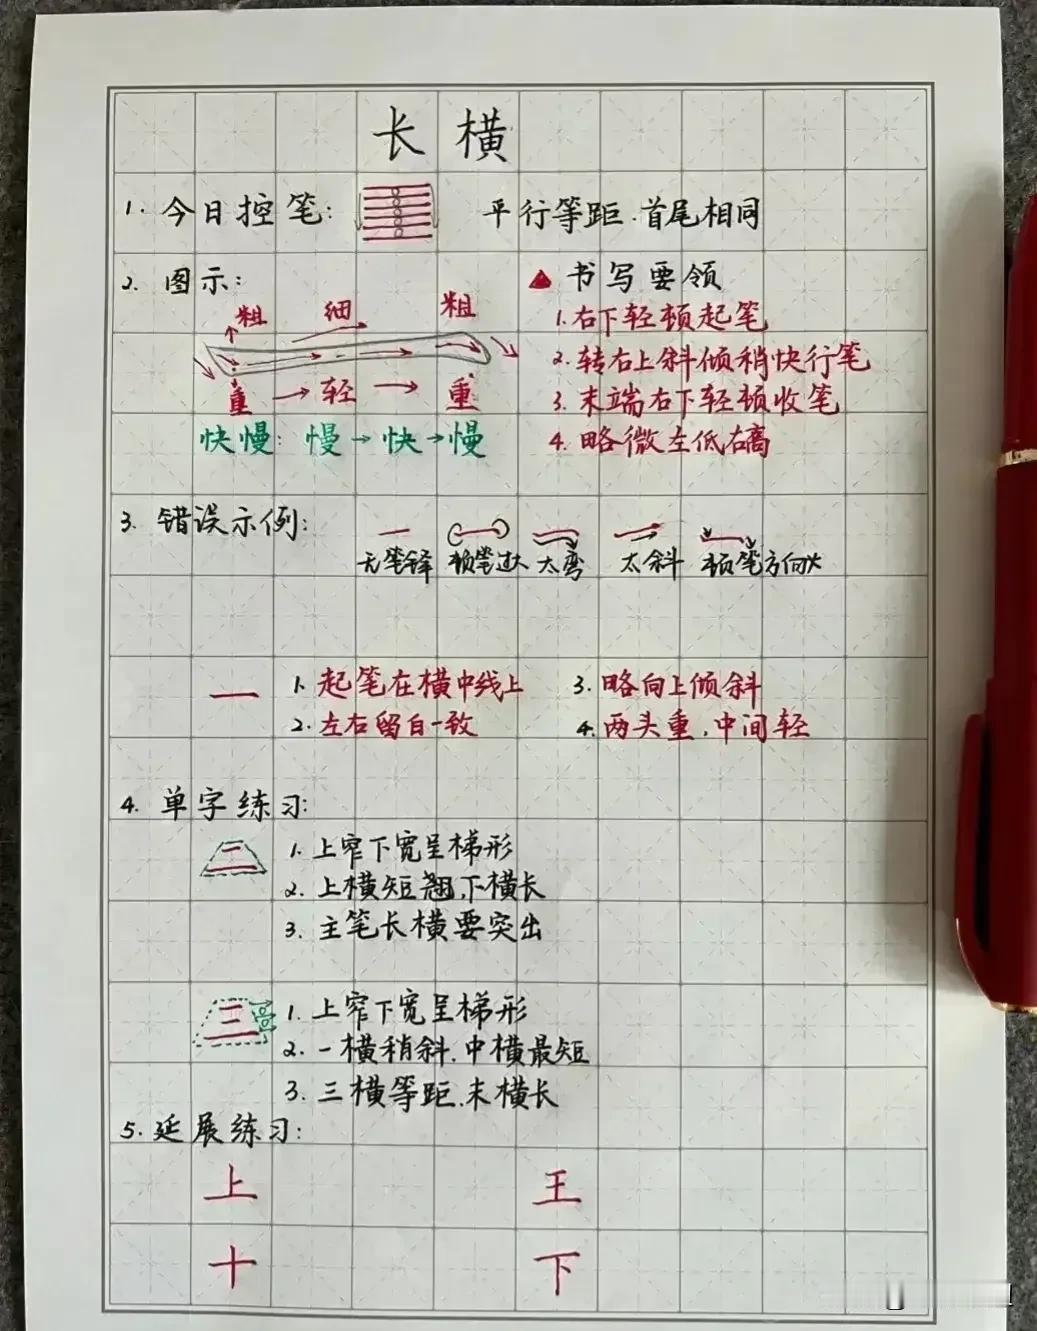 长横
1. 今日控笔: 平行等距.首尾相同
2. 图示:
粗 细 粗
重 → 轻 → 重
快慢: 慢→快→慢
▲ 书写要领
1.右下轻顿起笔
2.转右上斜倾稍快行笔
3.末端右下轻顿收笔
4.略微左低右高
3. 错误示例:
无笔锋 顿笔过大 太弯 太斜 顿笔方向
一
1.起笔在横中线上
2.左右留白一致
3.略向上倾斜
4.两头重.中间轻
4. 单字练习:
二
1.上窄下宽呈梯形
2.上横短翘.下横长
3.主笔长横要突出
三
1.上窄下宽呈梯形
2.一横稍斜.中横最短
3.三横等距.末横长
5.延展练习:
上 王
十 下